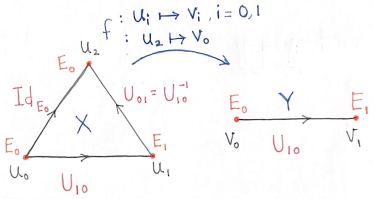 f : u_i ↦ v_i, i = 0,1
: u_2 ↦ v_0
u_2
E_0
Id_{E_0}
U_{01} = U_{10}^{-1}
X
E_0
E_1
u_0
u_1
U_{10}
E_0
Y
E_1
v_0
v_1
U_{10}